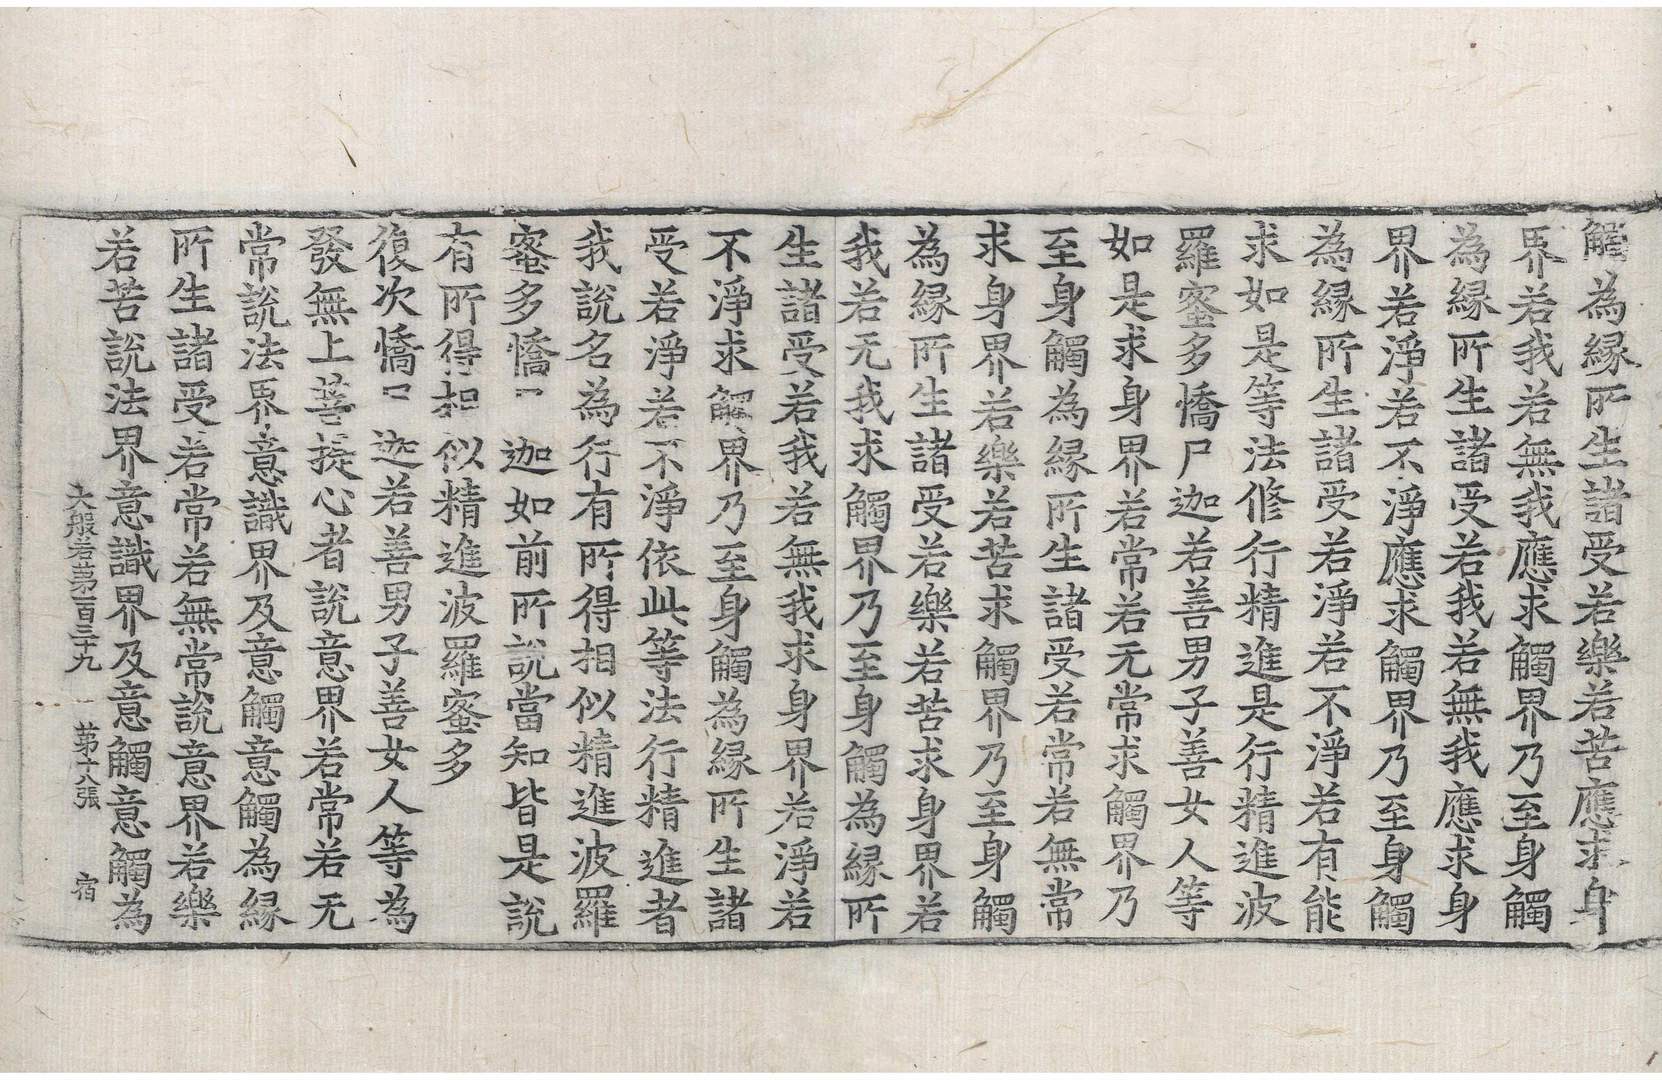 觸為緣所生諸受若樂若苦應求身
界若我若無我應求觸界乃至身觸
為緣所生諸受若我若無我應求身
界若淨若不淨應求觸界乃至身觸
為緣所生諸受若淨若不淨若有能
求如是等法修行精進是行精進波
羅蜜多憍尸迦若善男子善女人等
如是求身界若常若无常求觸界乃
至身觸為緣所生諸受若常若無常
求身界若樂若苦求觸界乃至身觸
為緣所生諸受若樂若苦求身界若
我若无我求觸界乃至身觸為緣所
生諸受若我若無我求身界若淨若
不淨求觸界乃至身觸為緣所生諸
受若淨若不淨依此等法行精進者
我說名為行有所得相似精進波羅
蜜多憍迦如前所說當知皆是說
有所得相似精進波羅蜜多
復次憍迦若善男子善女人等為
發無上菩提心者說意界若常若无
常說法界意識界及意觸意觸為緣
所生諸受若常若無常說意界若樂
若苦說法界意識界及意觸意觸為
大般若第一百三十九 第十八張 宿